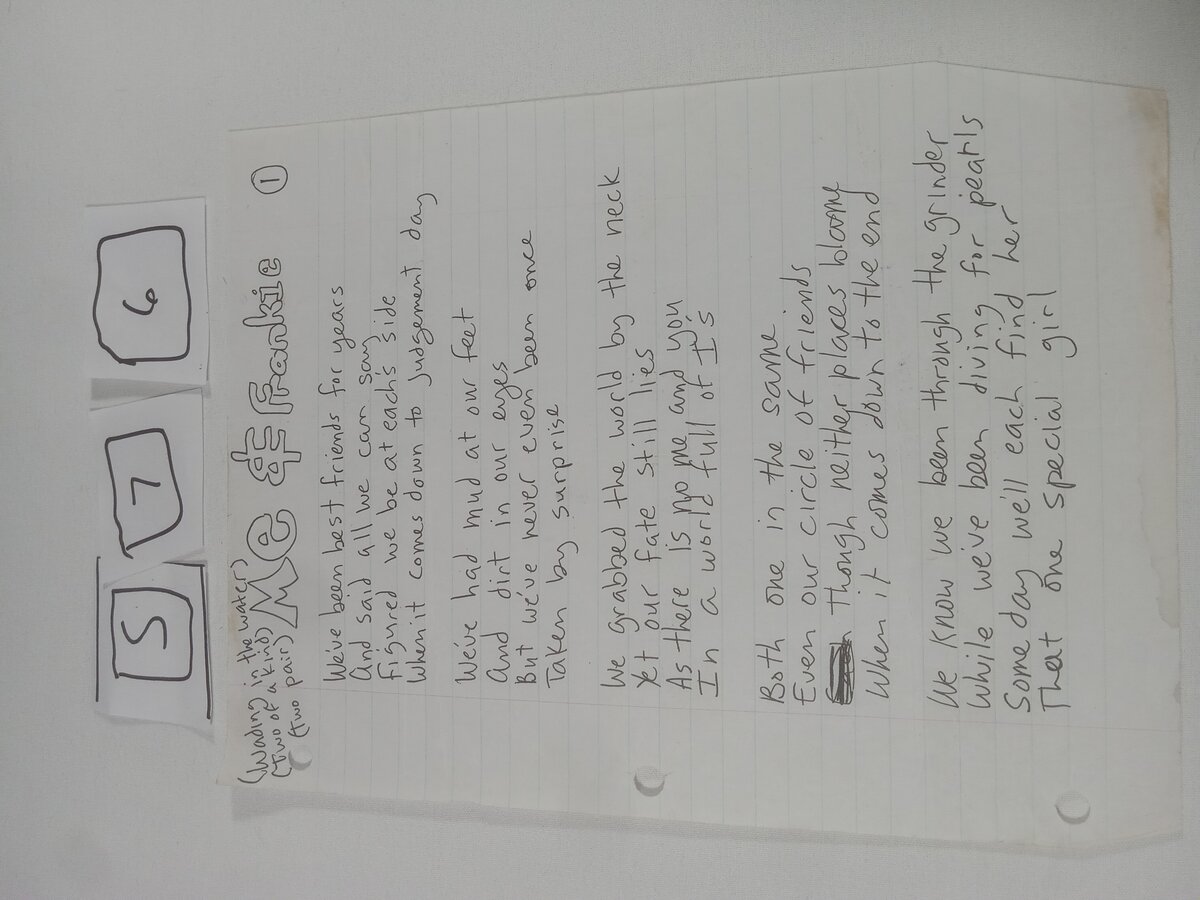 5 7 6
(Wading in the water)
(Two of a kind)
(Two pair) Me & Frankie 1
We've been best friends for years
And said all we can say
figured we be at each's side
When it comes down to judgement day
We've had mud at our feet
And dirt in our eyes
But we've never even been once
Taken by surprise
We grabbed the world by the neck
Yet our fate still lies
As there is no me and you
In a world full of I's
Both one in the same
Even our circle of friends
Though neither places blame
When it comes down to the end
We know we been through the grinder
While we've been diving for pearls
Some day we'll each find her
That one special girl